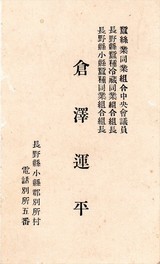 蠶絲業同業組合中央會議員
長野縣蠶種冷藏同業組合組長
長野縣小縣蠶種同業組合組長
倉澤運平
長野縣小縣郡別所村
電話別所五番